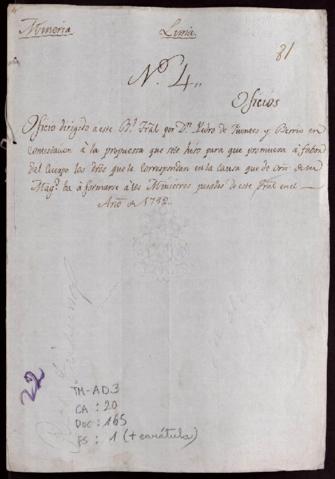 Mineria Lima
81
N.º 4.,
Oficios
Oficio dirigido a este R.l Trãl por D.n Pedro de y Berrio en
contestacion à la propuesta que sele hizo para que promueva à fabor
del Cuerpo los dros que le correspondan en la causa que de orn de su
Mag.d ha à formarse a los Ministros de este Trãl en el
Año de 1792.,
22
TM-AD3
CA : 20
DOC : 165
FS : 1 (+ carátula)